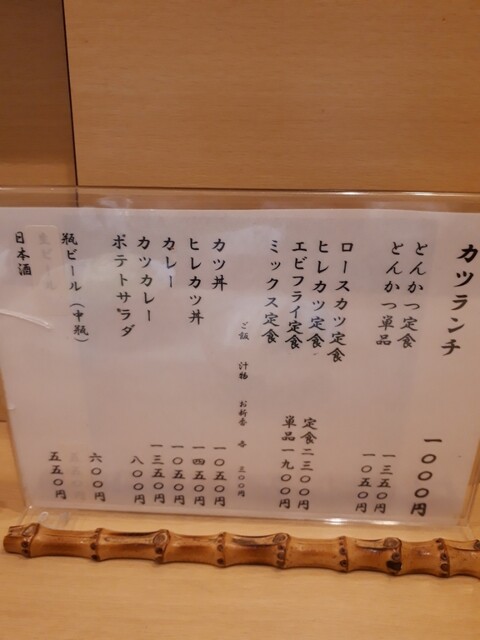 カツランチ 一〇〇〇円
とんかつ定食 一三五〇円
とんかつ単品 一〇五〇円
ロースカツ定食
ヒレカツ定食
エビフライ定食
ミックス定食
定食二三〇〇円
単品一九〇〇円
ご飯 汁物 お新香 各 三〇〇円
カツ丼 一〇五〇円
ヒレカツ丼 一四五〇円
カレー 一〇五〇円
カツカレー 一三五〇円
ポテトサラダ 八〇〇円
瓶ビール(中瓶) 六〇〇円
生ビール
日本酒 五五〇円